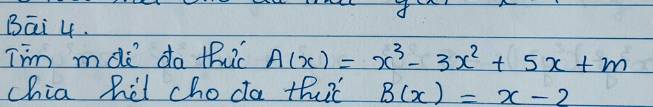 Bài 4.
Tìm m để đa thức A(x) = x³ - 3x² + 5x + m
chia hết cho đa thức B(x) = x - 2